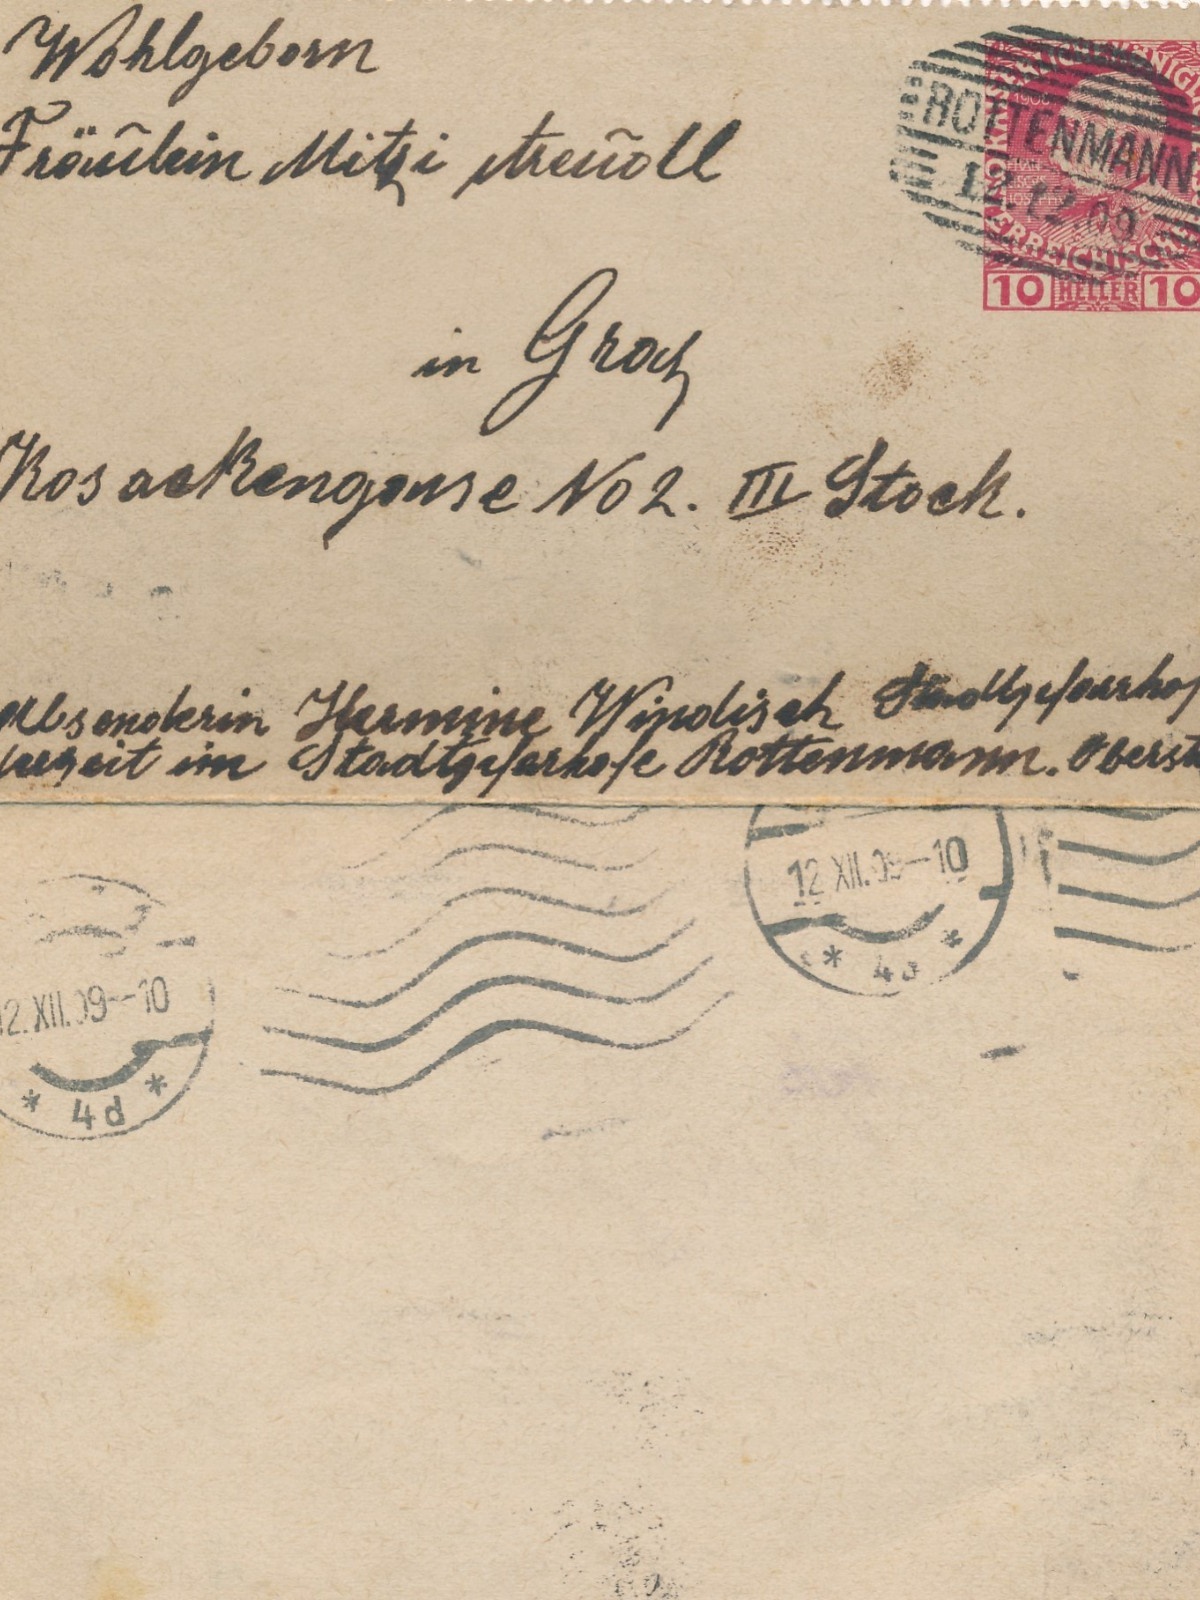 Wohlgeborn
Fräulein Mitzi
ROTTENMANN
12.12.09
1908
10 HELLER 10
in Graz
Kosackengasse No 2. III Stock.
Absenderin Hermine Windisch Stadtpfarrhof
derzeit im Stadtpfarrhofe Rottenmann. Oberst
12 XII.09–10
* 4d *
12.XII.09–10
* 4d *